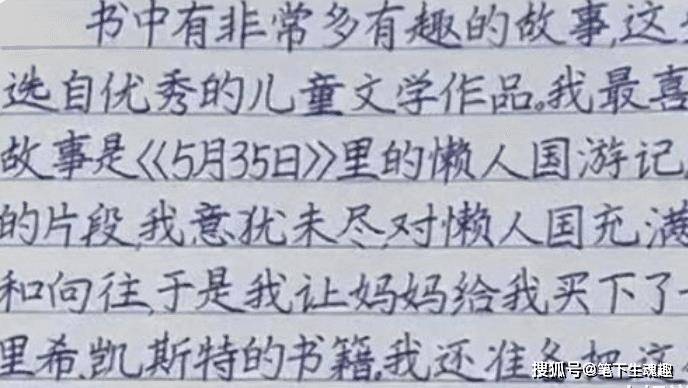 书中有非常多有趣的故事,这
选自优秀的儿童文学作品。我最喜
故事是《5月35日》里的懒人国游记,
的片段,我意犹未尽,对懒人国充满
和向往,于是我让妈妈给我买下了
里希.凯斯特的书籍,我还准备
搜狐号@笔下生魂趣